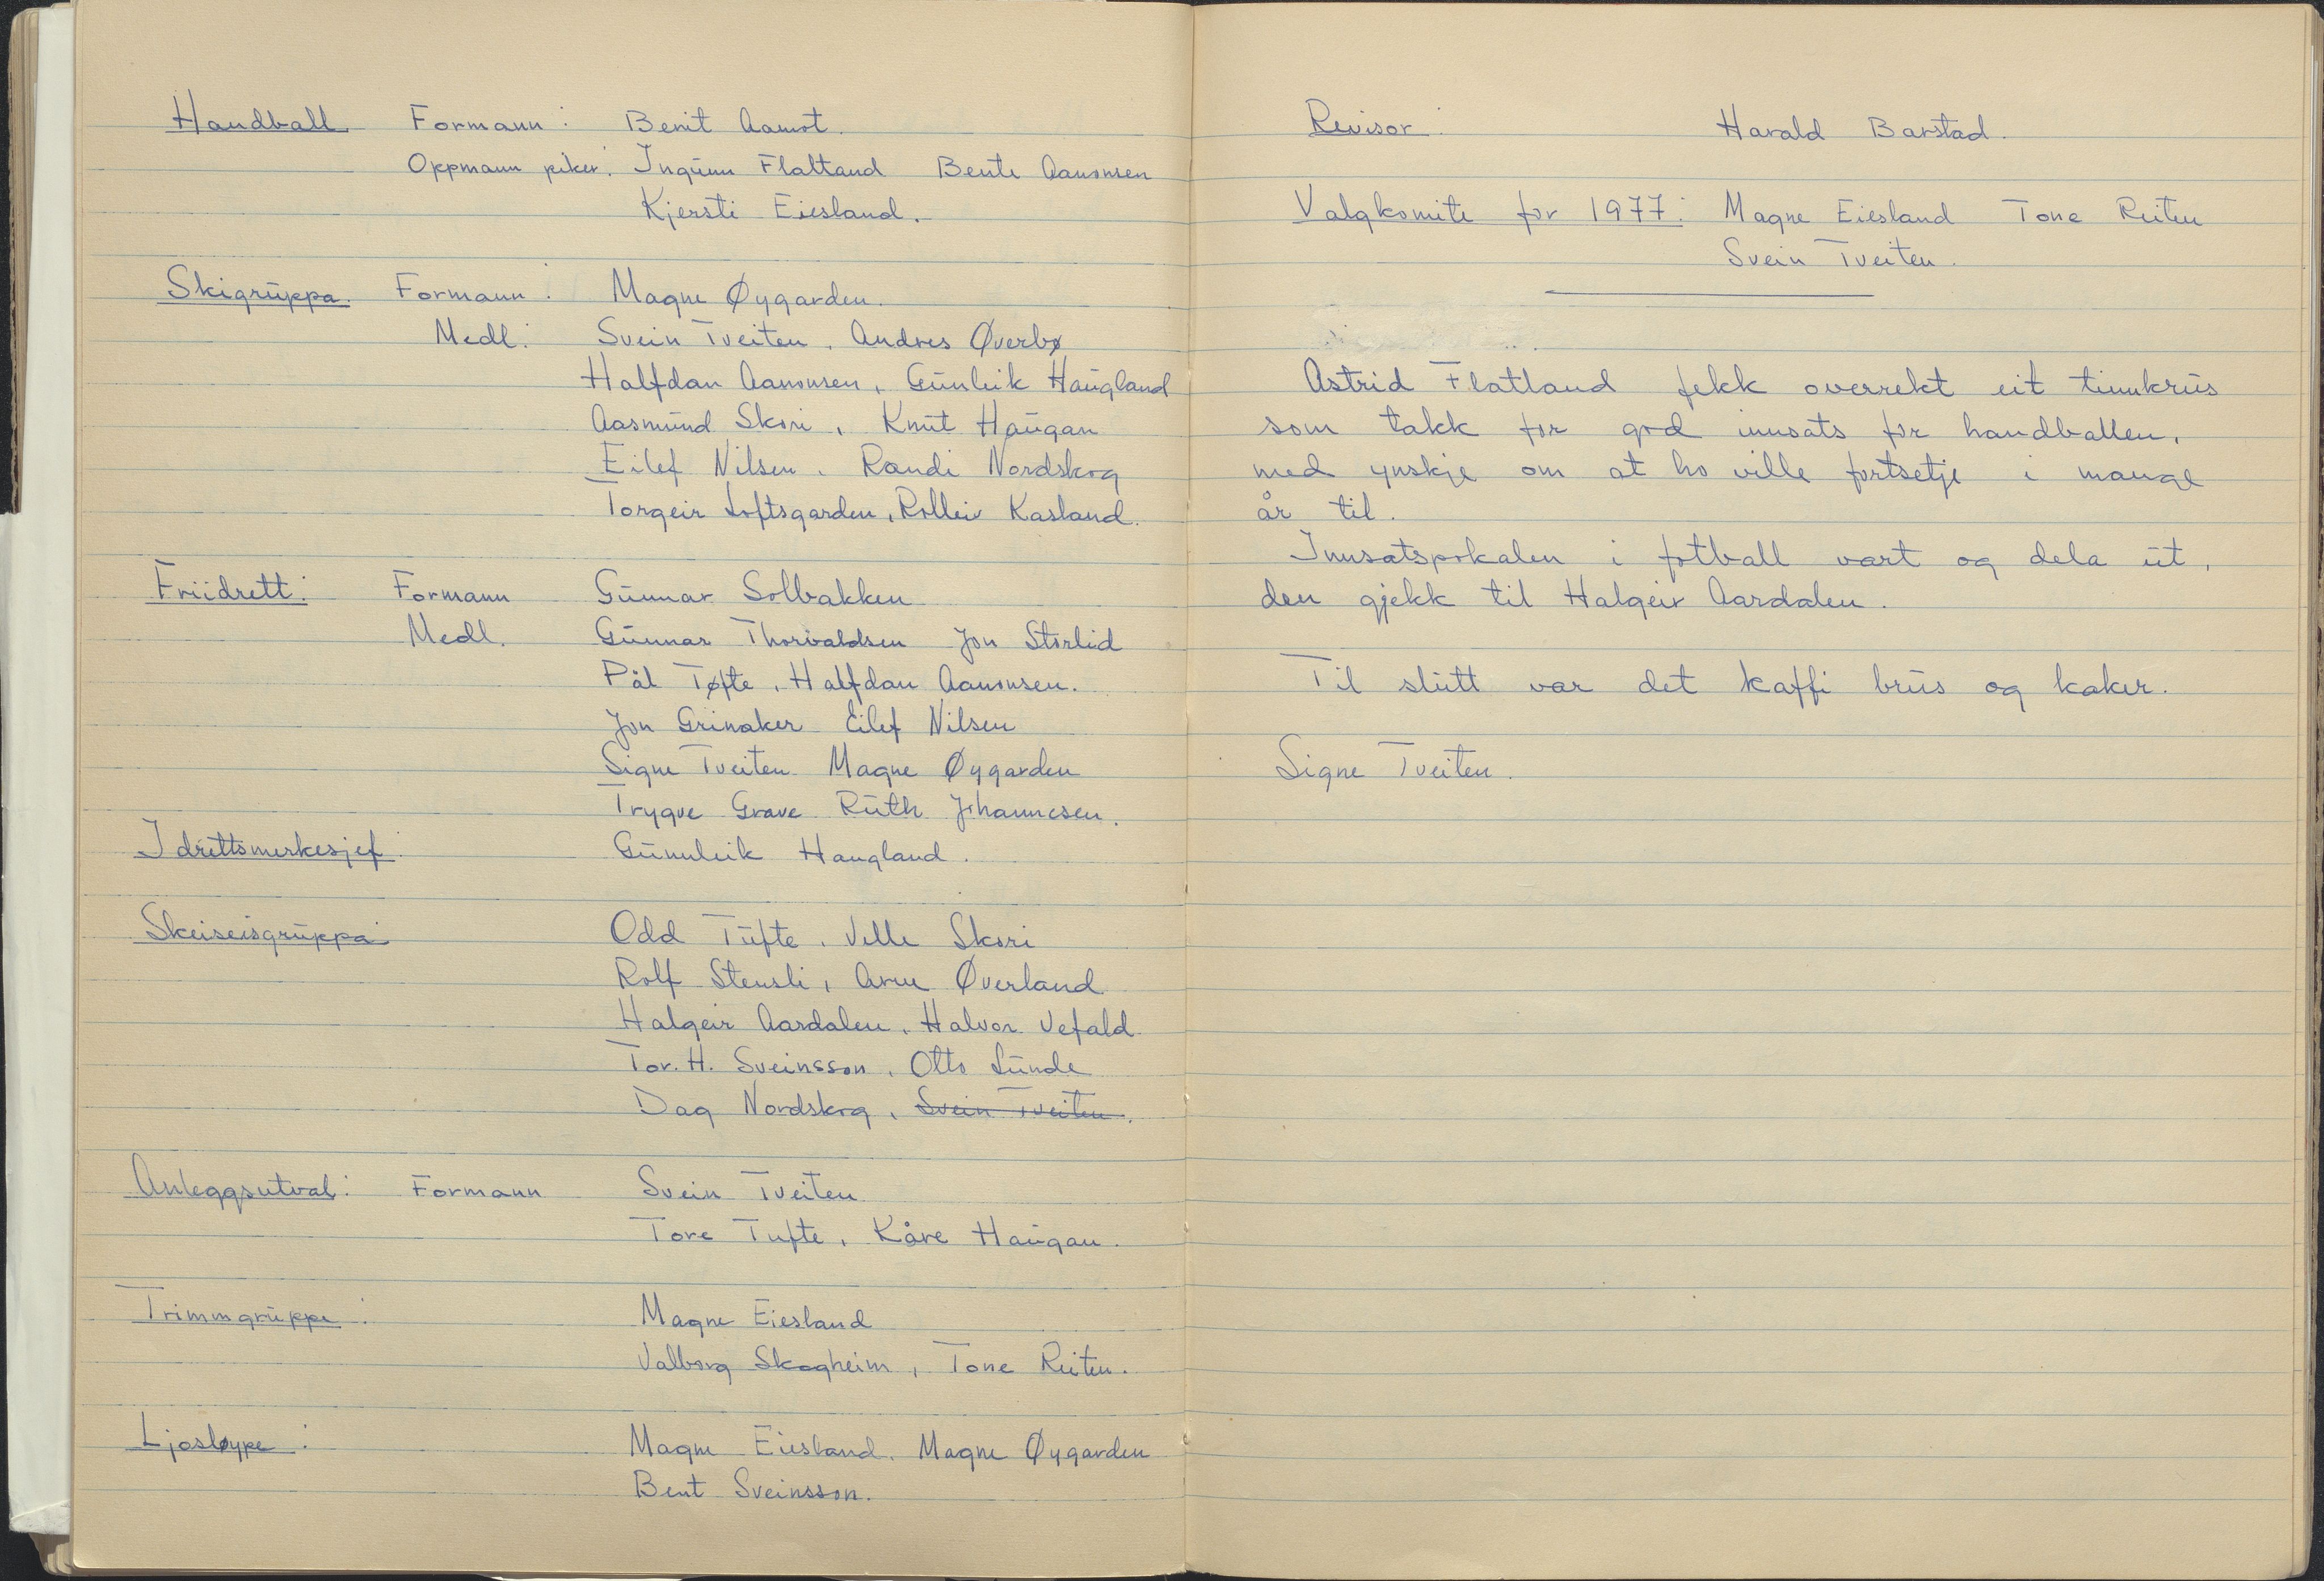 Handball Formann: Berit Aamot.
Oppmann piker: Ingunn Flatland Bente Aanonsen
Kjersti Eiesland.
Skigruppa. Formann: Magne Øygarden.
Medl: Svein Tveiten, Andres Øverbø
Halfdan Aanonsen, Gunleik Haugland
Aasmund Skori, Knut Haugan
Eilef Nilsen, Randi Nordskog
Torgeir Loftsgarden, Rolleiv Kasland.
Friidrett: Formann Gunnar Solbakken
Medl. Gunnar Thorvaldsen Jon Storlid
Pål Tøfte, Halfdan Aanonsen.
Jon Grinaker Eilef Nilsen
Signe Tveiten Magne Øygarden
Trygve Grave Ruth Johannesen.
Idrettsmerkesjef. Gunnleik Haugland.
Skeiseisgruppa Odd Tufte, Velle Skori
Rolf Stensli, Arne Øverland
Halgeir Aardalen, Halvor Vefald
Tor. H. Sveinsson, Otto Lunde
Dag Nordskog, Svein Tveiten.
Anleggsutval: Formann Svein Tveiten
Tore Tufte, Kåre Haugan.
Trimmgruppe: Magne Eiesland
Valborg Skogheim, Tone Reiten.
Ljosløype: Magne Eiesland, Magne Øygarden
Bent Sveinsson.
Revisor: Harald Barstad.
Valgkomite for 1977: Magne Eiesland Tone Reiten
Svein Tveiten.
Astrid Flatland fekk overrekt eit tinnkrus
som takk for god innsats for handballen,
med ynskje om at ho ville fortsetje i mange
år til.
Innsatspokalen i fotball vart og dela ut,
den gjekk til Halgeir Aardalen.
Til slutt var det kaffi brus og kaker.
Signe Tveiten.